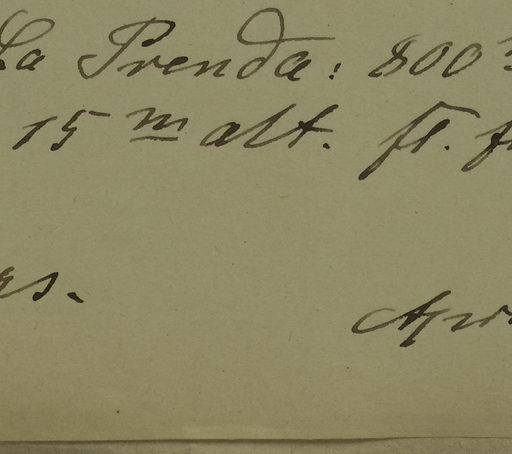 La Prenda: 800
15 m alt. fl.